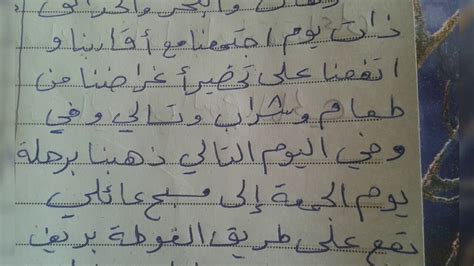 والبحر والحدائق
ذات يوم اجتمعنا مع أقاربنا و
اتفقنا على تحضير أغراضنا من
طعام وشراب وتسالي وفي
وفي اليوم التالي ذهبنا برحلة
يوم الجمعة إلى مسبح عائلي
تقع على طريق الغوطة بريف